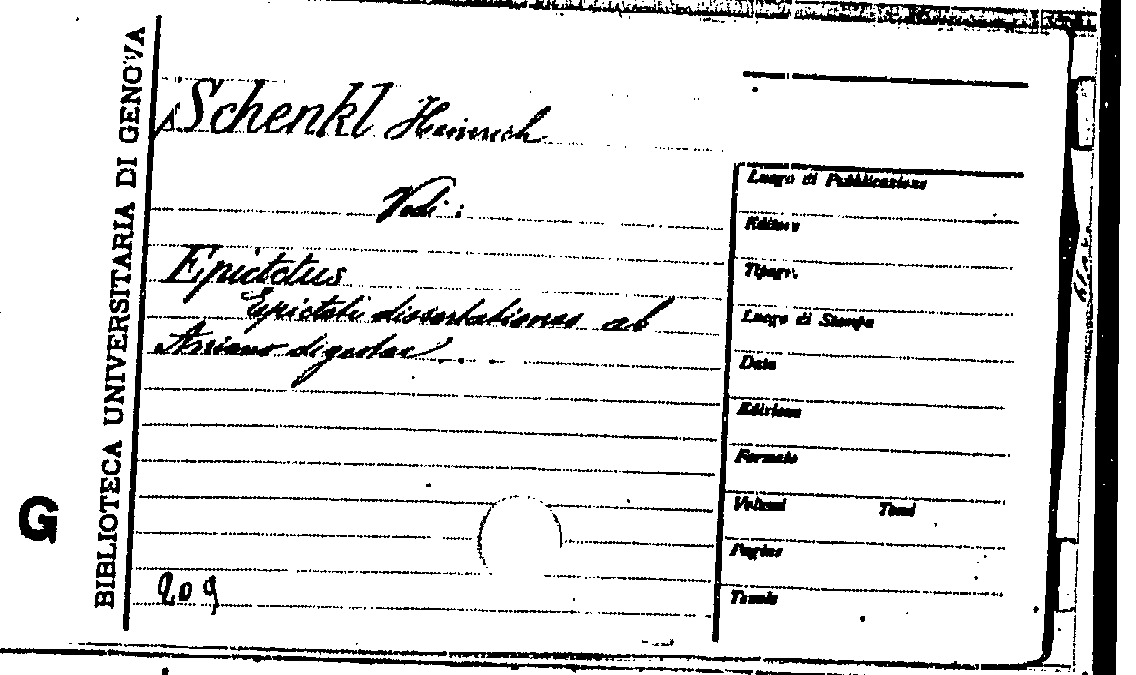 BIBLIOTECA UNIVERSITARIA DI GENOVA
Schenkl Heinrich
Vedi:
Epictetus
Epicteti dissertationes ab
Arriano digestae
209
G
Luogo di Pubblicazione
Editore
Tipogr.
Luogo di Stampa
Data
Edizione
Formato
Volumi Tomi
Pagine
Tavole